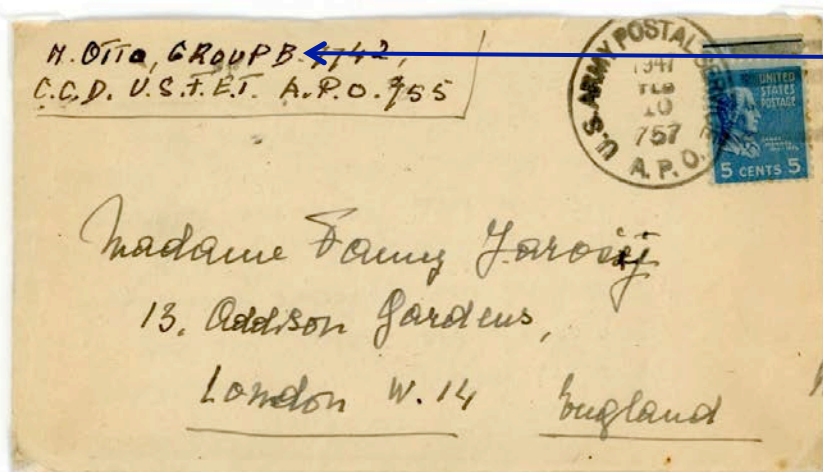 M. OTTO, GROUP B.
C.C.D. U.S.F.E.T. A.P.O. 755
U.S. ARMY POSTAL SERVICE
1947
FEB
10
757
A.P.O.
UNITED
STATES
POSTAGE
5 CENTS 5
Madame Fanny
13, Addison Gardens,
London W.14 England